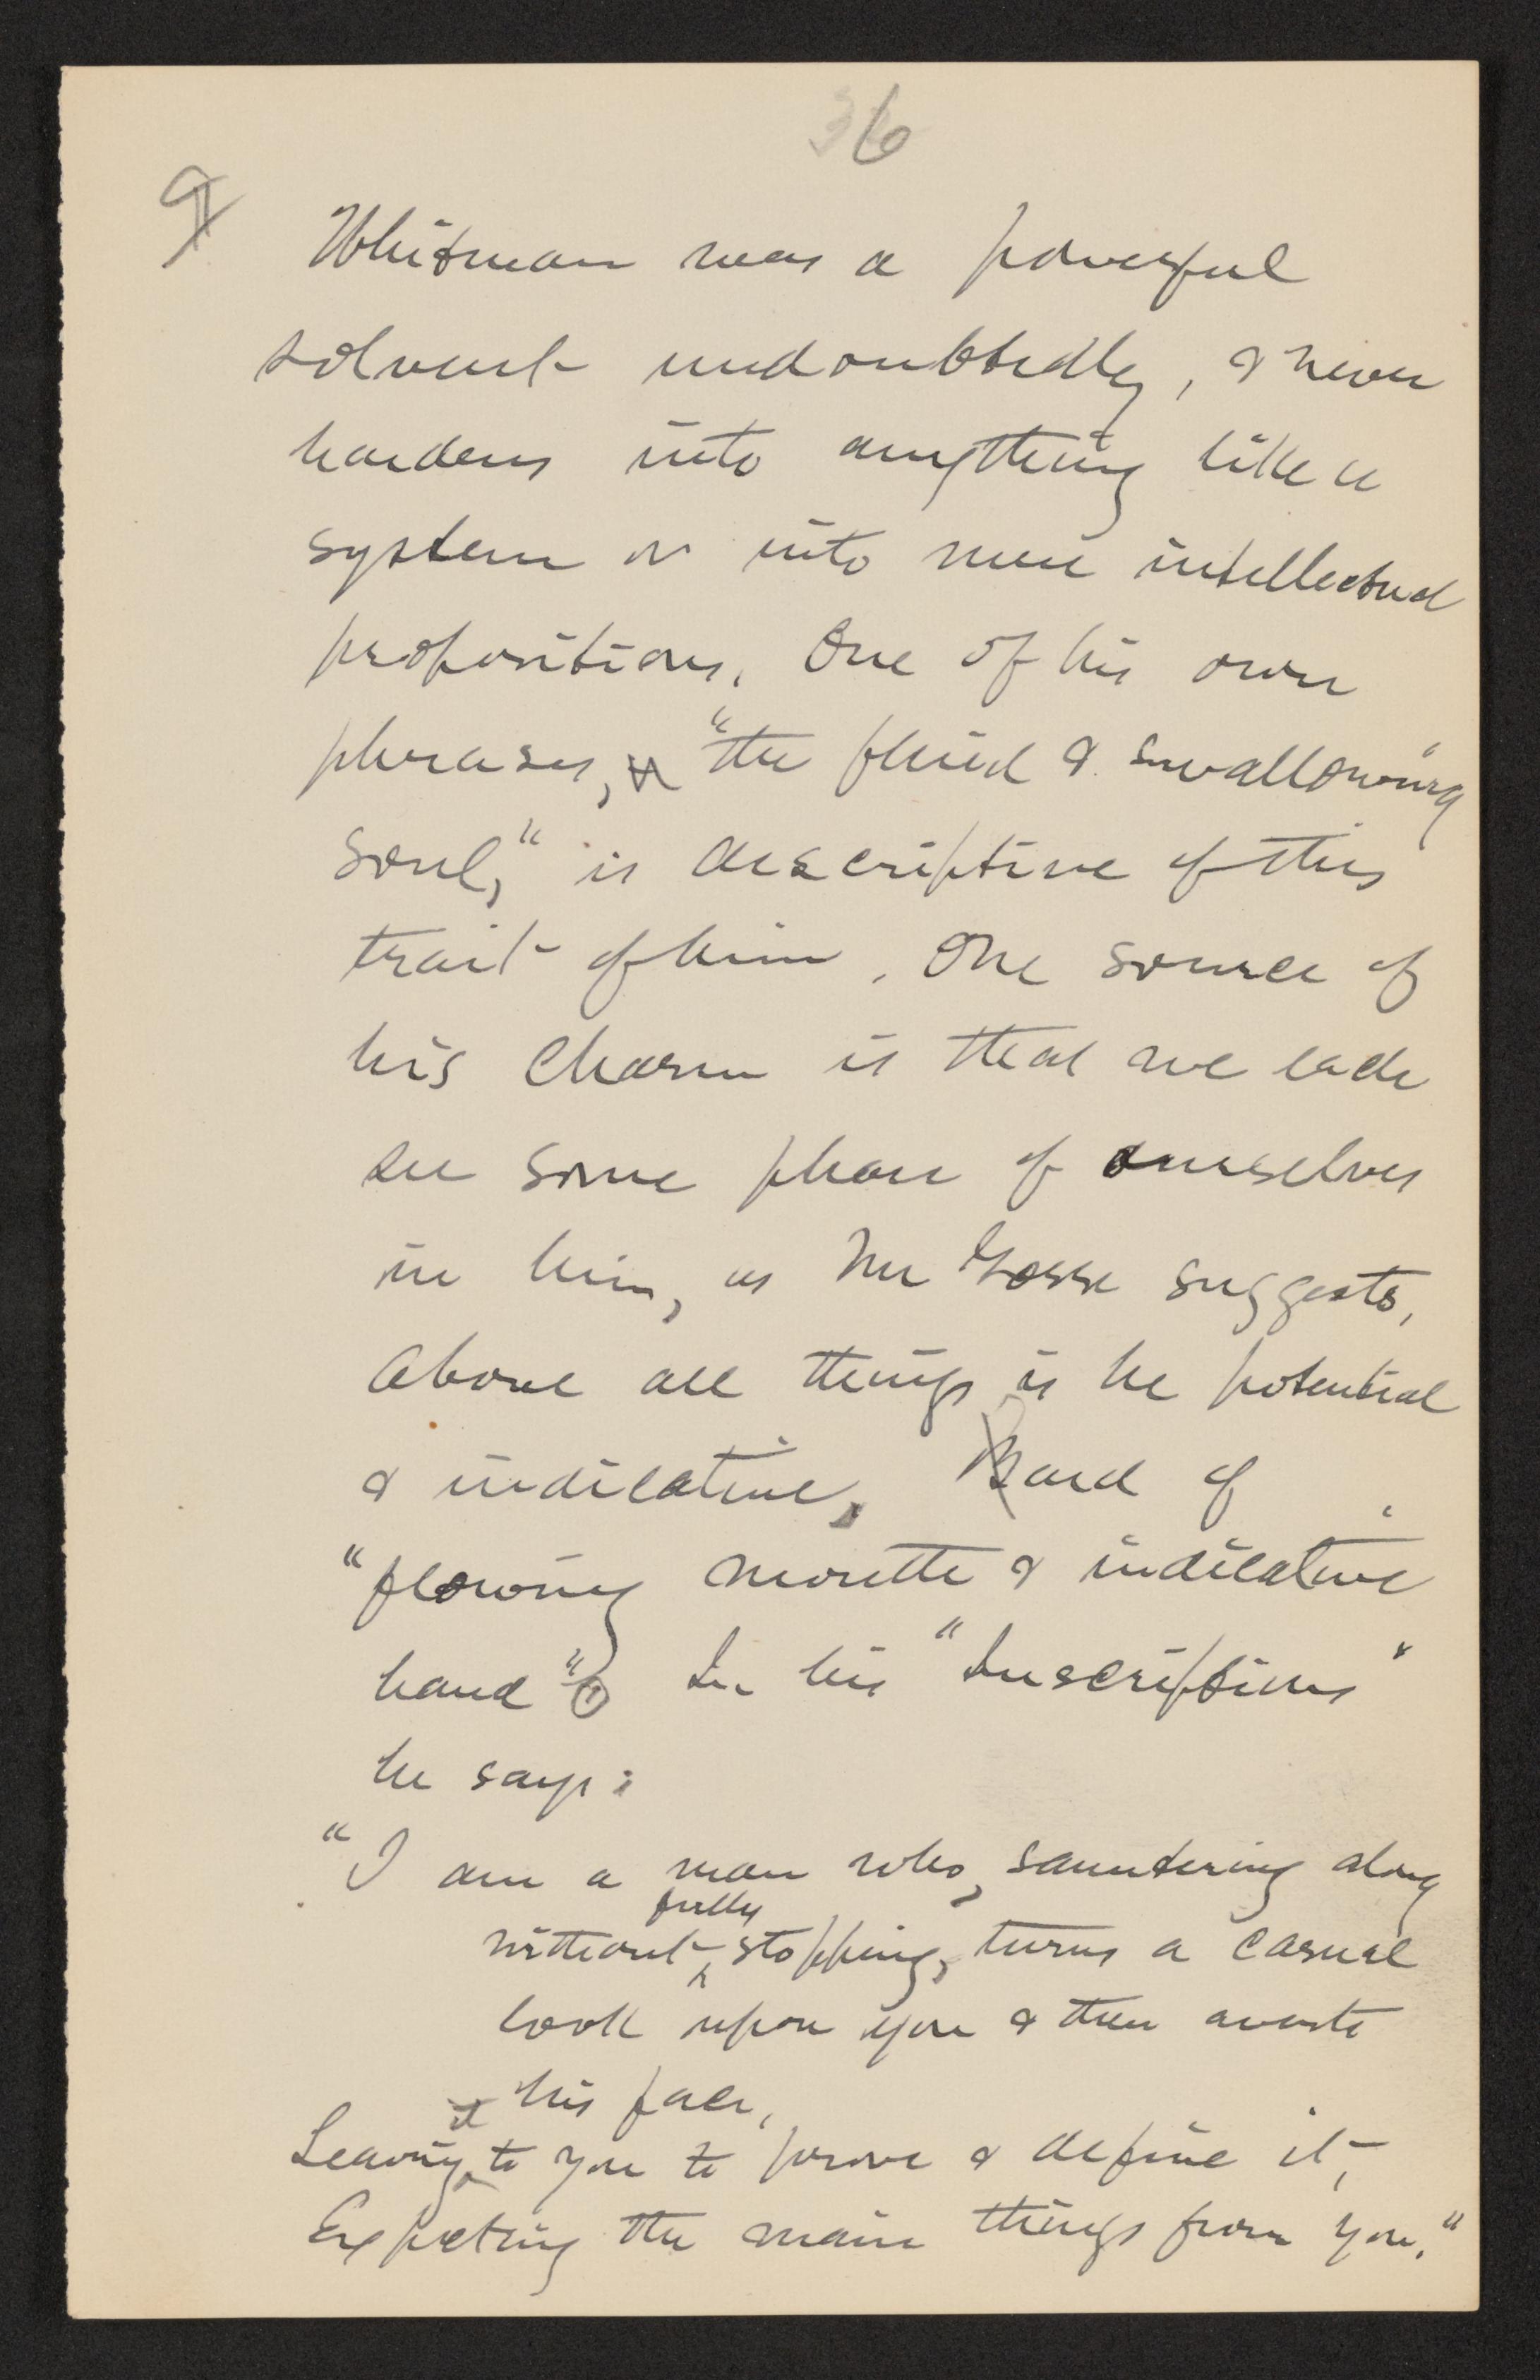 36
¶ Whitman was a powerful
solvent undoubtedly, & never
hardens into anything like a
system or into mere intellectual
propositions. One of his own
phrases, "the fluid & swallowing
soul," is descriptive of this
trait of him. One source of
his charm is that we each
see some phase of ourselves
in him, as Mr Gosse suggests,
Above all things is he potential
& indicative, Bard of
"flowing mouth & indicative
hand". In his "Inscriptions"
he says:
"I am a man who, sauntering along
without fully stopping, turns a casual
look upon you & then averts
his face,
Leaving it to you to prove & define it,
Expecting the main things from you."